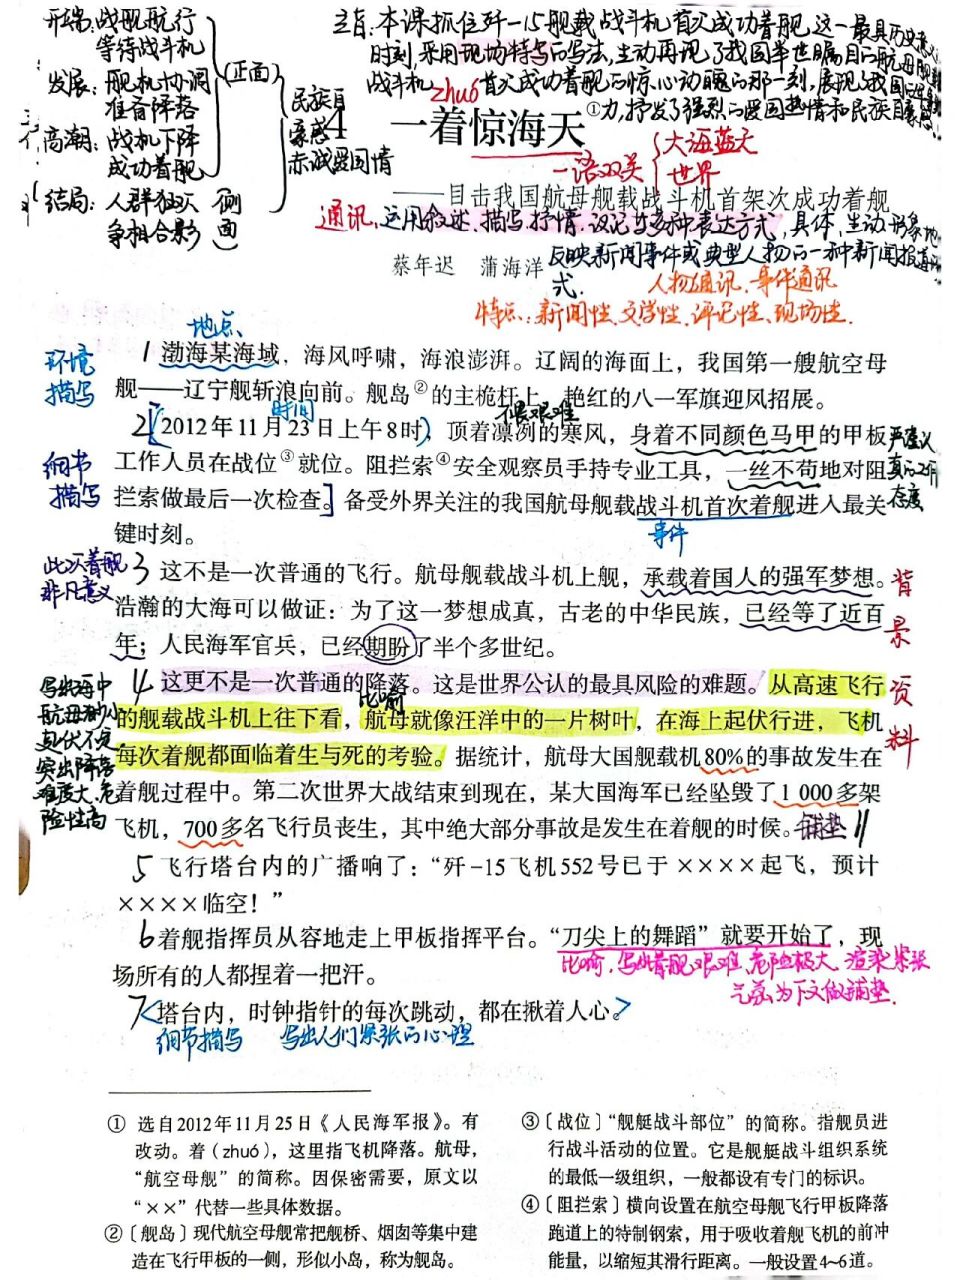 开端:战舰航行
等待战斗机
发展:舰机协调
准备降落
高潮:战机下降
成功着舰
结局:人群狂欢
争相合影
(正面)
(侧面)
民族自豪感
赤诚爱国情
主旨:本课抓住歼-15舰载战斗机首次成功着舰这一最具历史意义
时刻,采用现场特写的写法,生动再现了我国举世瞩目的航母舰载
战斗机首次成功着舰的惊心动魄的那一刻,展现了我国的
力,抒发了强烈的爱国热情和民族自豪感
zhuó
4 一着惊海天①
一语双关
大海蓝天
世界
——目击我国航母舰载战斗机首架次成功着舰
通讯:运用叙述、描写、抒情、议论等多种表达方式,具体、生动形象地
反映新闻事件或典型人物的一种新闻报道形
式.
蔡年迟 蒲海洋
人物通讯、事件通讯
特点:新闻性、文学性、评论性、现场性.
地点
环境描写
1 渤海某海域,海风呼啸,海浪澎湃。辽阔的海面上,我国第一艘航空母
舰——辽宁舰斩浪向前。舰岛②的主桅杆上,艳红的八一军旗迎风招展。
时间
很艰难
2 [(2012年11月23日上午8时),顶着凛冽的寒风,身着不同颜色马甲的甲板
细节描写
工作人员在战位③就位。阻拦索④安全观察员手持专业工具,一丝不苟地对阻
严谨认真的工作态度
拦索做最后一次检查。]备受外界关注的我国航母舰载战斗机首次着舰进入最关
键时刻。
事件
此次着舰非凡意义
3 这不是一次普通的飞行。航母舰载战斗机上舰,承载着国人的强军梦想。
浩瀚的大海可以做证:为了这一梦想成真,古老的中华民族,已经等了近百
年;人民海军官兵,已经期盼了半个多世纪。
背景资料
4 这更不是一次普通的降落。这是世界公认的最具风险的难题。从高速飞行
比喻
的舰载战斗机上往下看,航母就像汪洋中的一片树叶,在海上起伏行进,飞机
每次着舰都面临着生与死的考验。据统计,航母大国舰载机80%的事故发生在
着舰过程中。第二次世界大战结束到现在,某大国海军已经坠毁了1 000多架
飞机,700多名飞行员丧生,其中绝大部分事故是发生在着舰的时候。铺垫
写出海中
航母渺小
起伏不定
突出降落
难度大、危
险性高
5 飞行塔台内的广播响了:“歼-15飞机552号已于××××起飞,预计
××××临空!”
6 着舰指挥员从容地走上甲板指挥平台。“刀尖上的舞蹈”就要开始了,现
场所有的人都捏着一把汗。
比喻,写出着舰艰难、危险极大,渲染紧张
气氛,为下文做铺垫.
7 <塔台内,时钟指针的每次跳动,都在揪着人心。>
细节描写 写出人们紧张的心理
① 选自2012年11月25日《人民海军报》。有
改动。着(zhuó),这里指飞机降落。航母,
“航空母舰”的简称。因保密需要,原文以
“××”代替一些具体数据。
②〔舰岛〕现代航空母舰常把舰桥、烟囱等集中建
造在飞行甲板的一侧,形似小岛,称为舰岛。
③〔战位〕“舰艇战斗部位”的简称。指舰员进
行战斗活动的位置。它是舰艇战斗组织系统
的最低一级组织,一般都设有专门的标识。
④〔阻拦索〕横向设置在航空母舰飞行甲板降落
跑道上的特制钢索,用于吸收着舰飞机的前冲
能量,以缩短其滑行距离。一般设置4~6道。